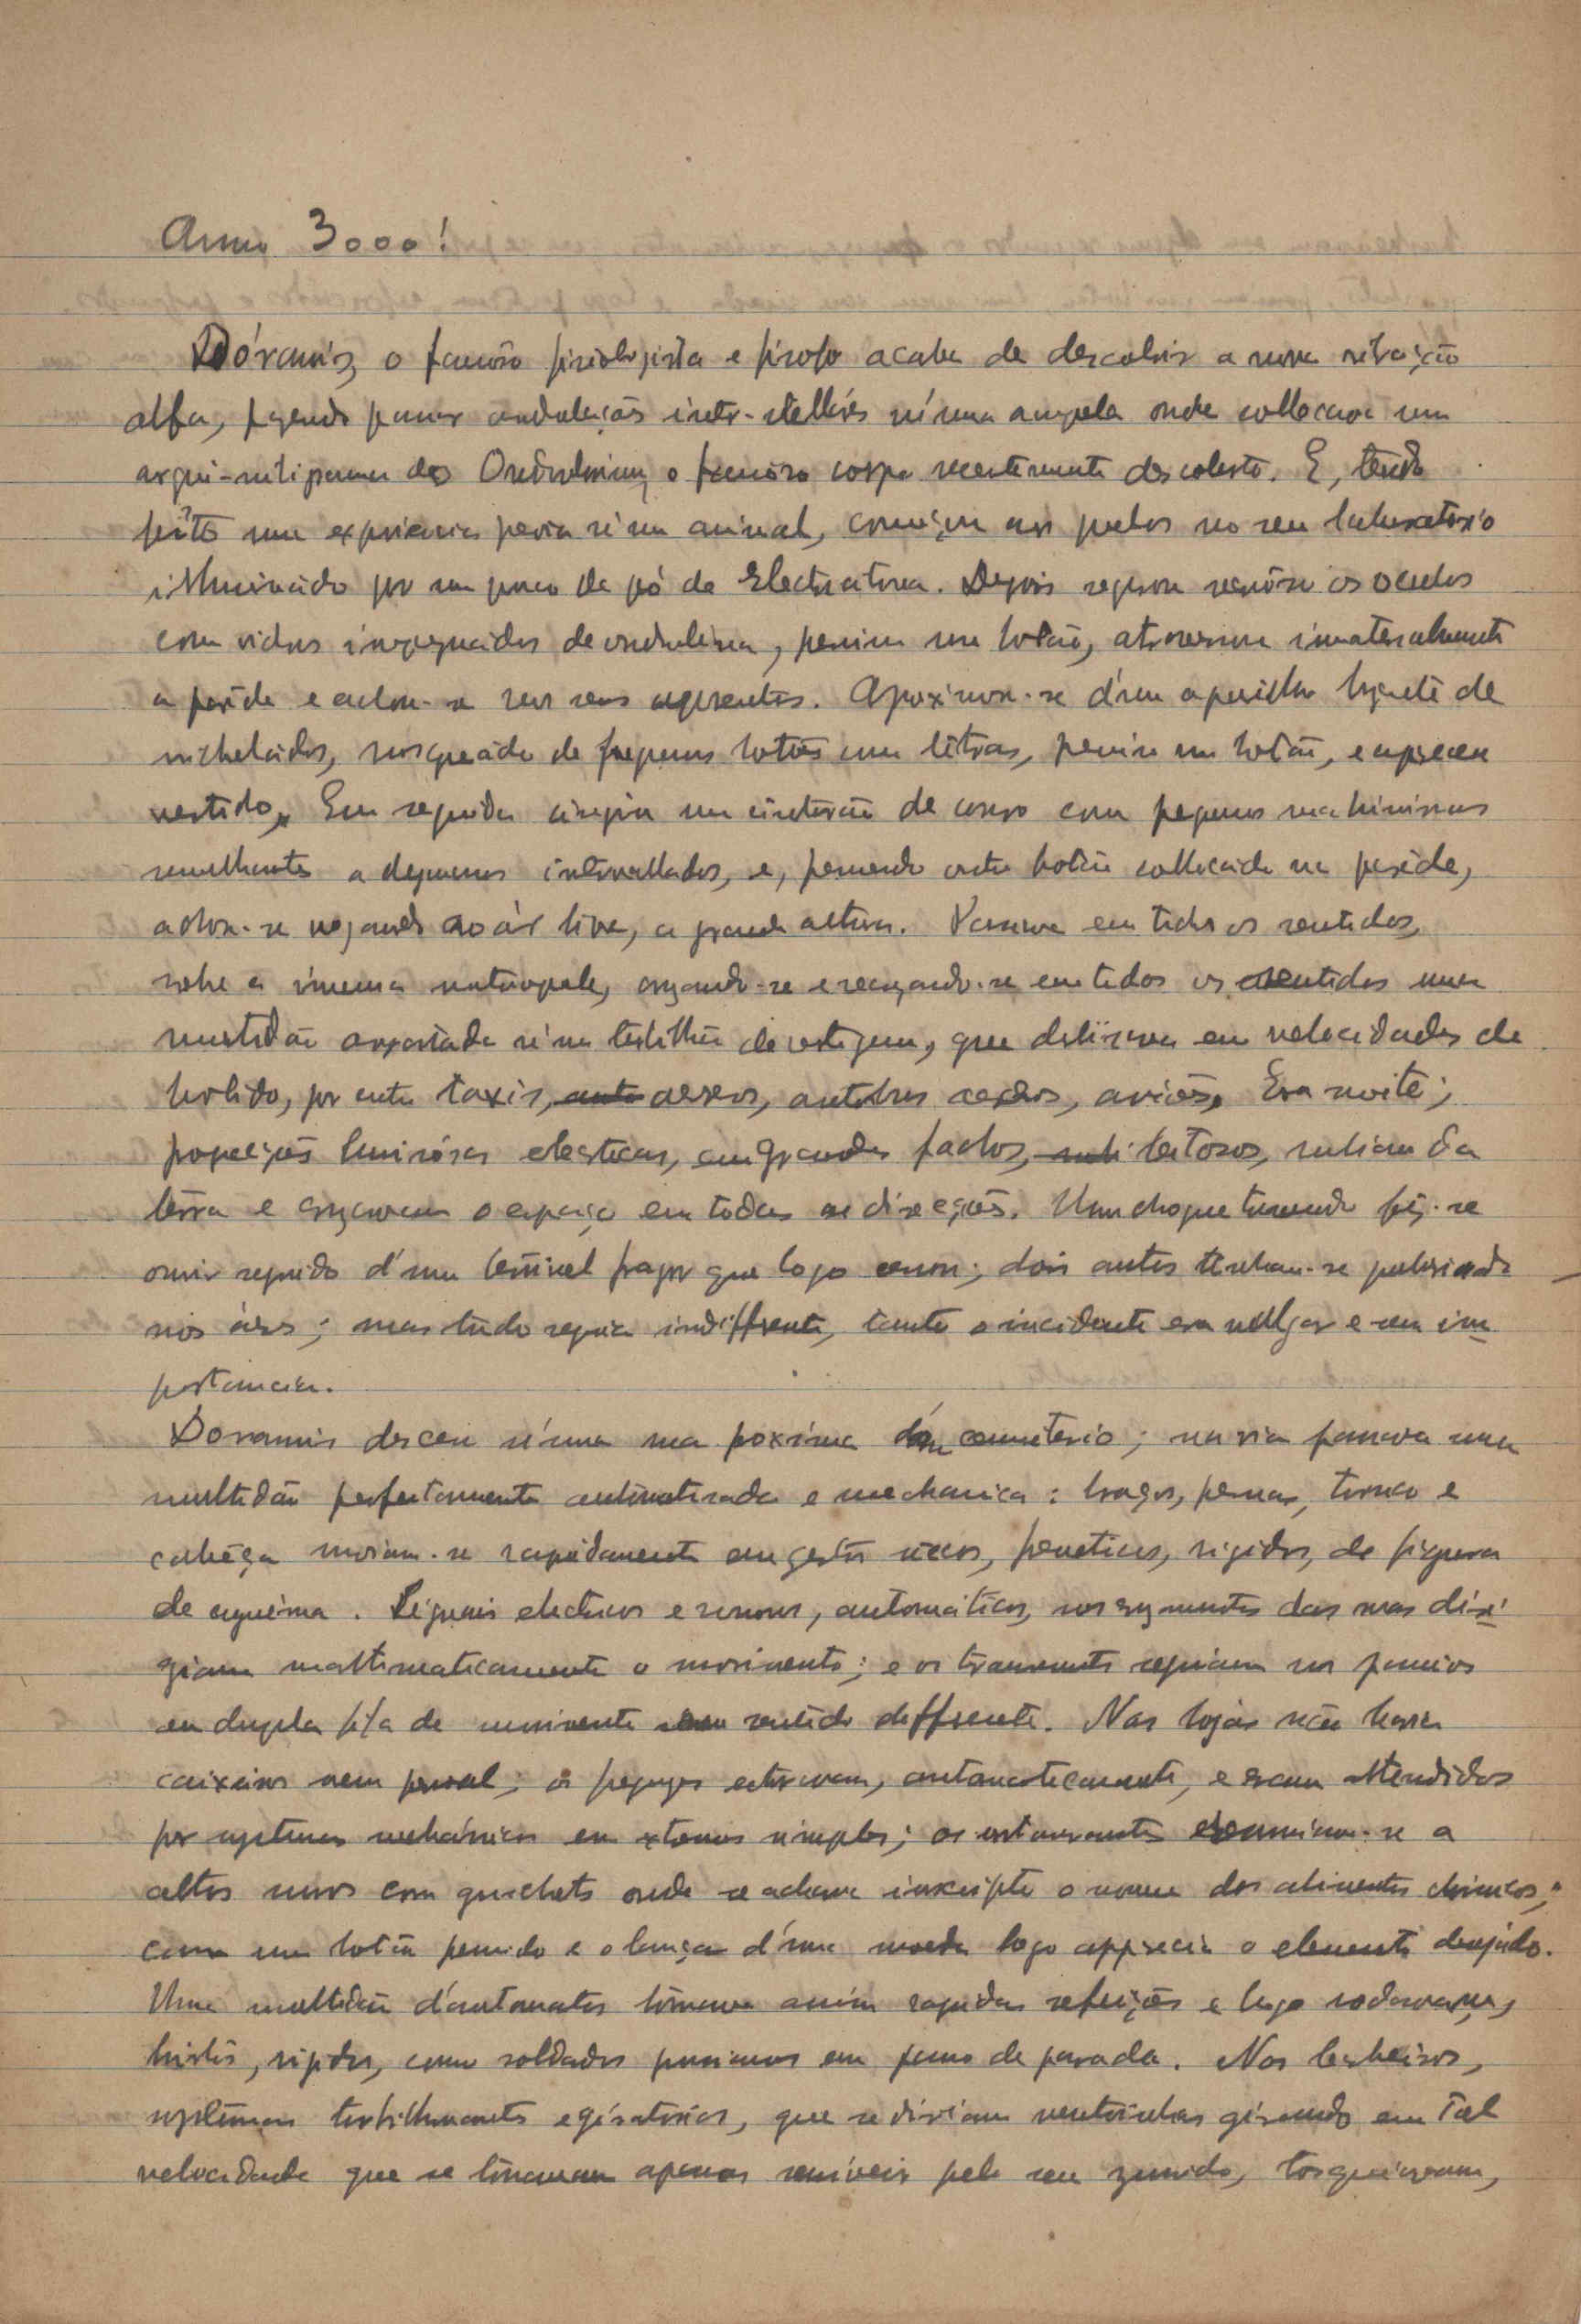 Anno 3000!
Dóramis, o famoso fisiologista e físofo acaba de descobrir a nova
alfa, fazendo passar ondulações inter-stellares n'uma ampola onde collocara um
do Ondulinium, o famoso corpo recentemente descoberto. E, tendo
feito uma experiencia previa n'um animal, no seu laboratorio
illuminado por um pouco de pó de Electratona. Depois os oculos
com vidros impregnados de ondulina, premiu um botão, atravessou imaterialmente
a parede e achou-se nos seus aposentos. Aproximou-se d'um aparelho de
nickelados, de pequenos botões com letras, premiu um botão, e appareceu
vestido. Em seguida cingiu um cinturão de couro com pequenas machininas
semelhantes a dynamos intervallados, e, premendo outro botão collocado na parede,
achou-se vogando ao ár livre, a grande altura. Passava em todos os sentidos,
sobre a imensa metropole, cruzando-se e recruzando-se em todos os sentidos uma
multidão arrastada n'um turbilhão de vertigem, que deslisava em velocidades de
bolido, por entre taxis, aereos, autobus aereos, aviões. Era noite;
projecções luminósas electricas, em grandes fachos, subiam da
terra e cruzavam o espaço em todas as direcções. Um choque tremendo fêz-se
ouvir seguido d'um terrivel fragor que logo cessou; dois autos tinham-se pulverisado
nos áres; mas tudo seguia indiffrente, tanto o incidente era vulgar e sem im
portancia.
Doramis desceu n'uma rua proxima d'um cemiterio; na via passava uma
multidão perfeitamente automatisada e mechanica: braços, pernas, tronco e
cabeça moviam-se rapidamente em gestos sêcos, freneticos, rigidos, de figura
de . Signais electricos e sonoros, automáticos, nos das ruas diri
giam mathematicamente o movimento; e os transeuntes seguiam nos passeios
em dupla fila de movimento sentido diffrente. Nas lojas não havia
caixeiros nem pessoal; os freguezes entravam, automaticamente, e eram attendidos
por systemas mechánicos em extremo simples; os restaurantes resumiam-se a
altos muros com guichets onde se achava inscripto o nome dos alimentos chimicos;
com um botão premido e o lançar d'uma moeda logo apparecia o elemento desejado.
Uma multidão d'automatos tomava assim rapidas refeições e logo rodava,
hirtos, rigidos, como soldados prussianos em passo de parada. Nos barbeiros,
systemas turbilhonantes e giratorios, que se diriam ventoinhas girando em tal
velocidade que se tornavam apenas sensiveis pelo seu zumido, tosqueavam,